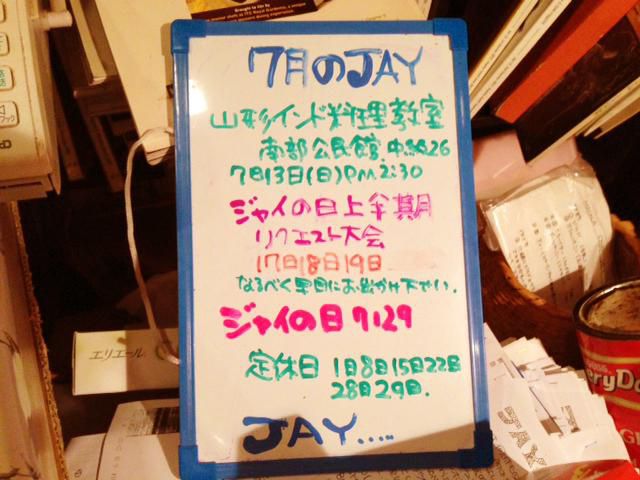 7月のJAY
山形インド料理教室
南部公民館
7月13日(日)P.M.2:30
ジャイの日上半期
リクエスト大会
17日18日19日
なるべく早目にお出かけ下さい.
ジャイの日 7/29
定休日 1日8日15日22日
28日29日.
JAY.....
エリエール
eryDa